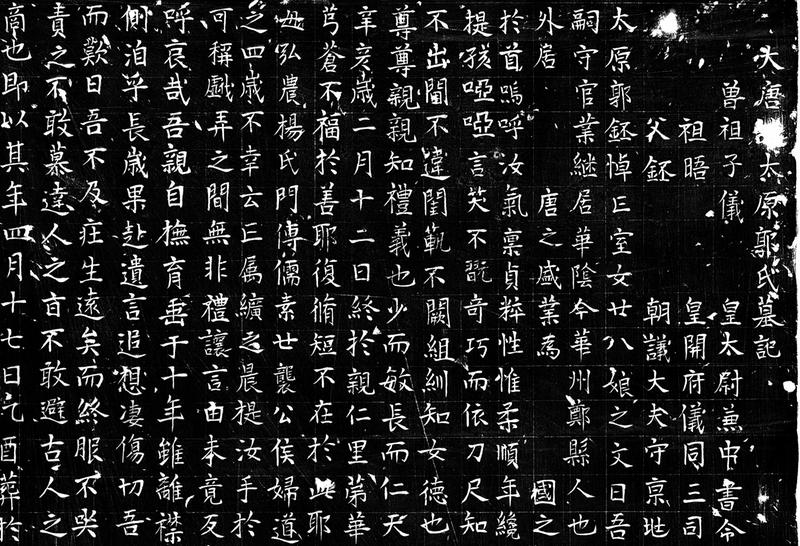 大唐太原郭氏墓記
曾祖子儀 皇太尉兼中書令
祖晤 皇開府儀同三司
父鉟 朝議大夫守京
太原郭鉟悼亡室女廿八娘之文曰吾
嗣守官業継居華陰今華州鄭縣人也
外居 唐之盛業焉 國之
於首嗚呼汝氣禀貞粹性惟柔順年纔
提孩啞啞言笑不翫奇巧而依刀尺知
不出閫不違閨範不闕組紃知女德也
尊尊親親知禮義也少而敏長而仁天
辛亥歲二月十二日終於親仁里第華
芎蒼不福於善耶復脩短不在於此耶
母弘農楊氏門傳儒素世襲公侯婦道
之四歲不幸云亡属纊之晨提汝手於
可稱戲弄之間無非禮讓言由未竟反
呼哀哉吾親自撫育垂于十年雖離襟
惻洎乎長歲果赴遺言追想凄傷切吾
而歎曰吾不及庄生遠矣而終服不哭
責之不敢慕達人之旨不敢避古人之
商也即以其年四月十七日己酉葬於